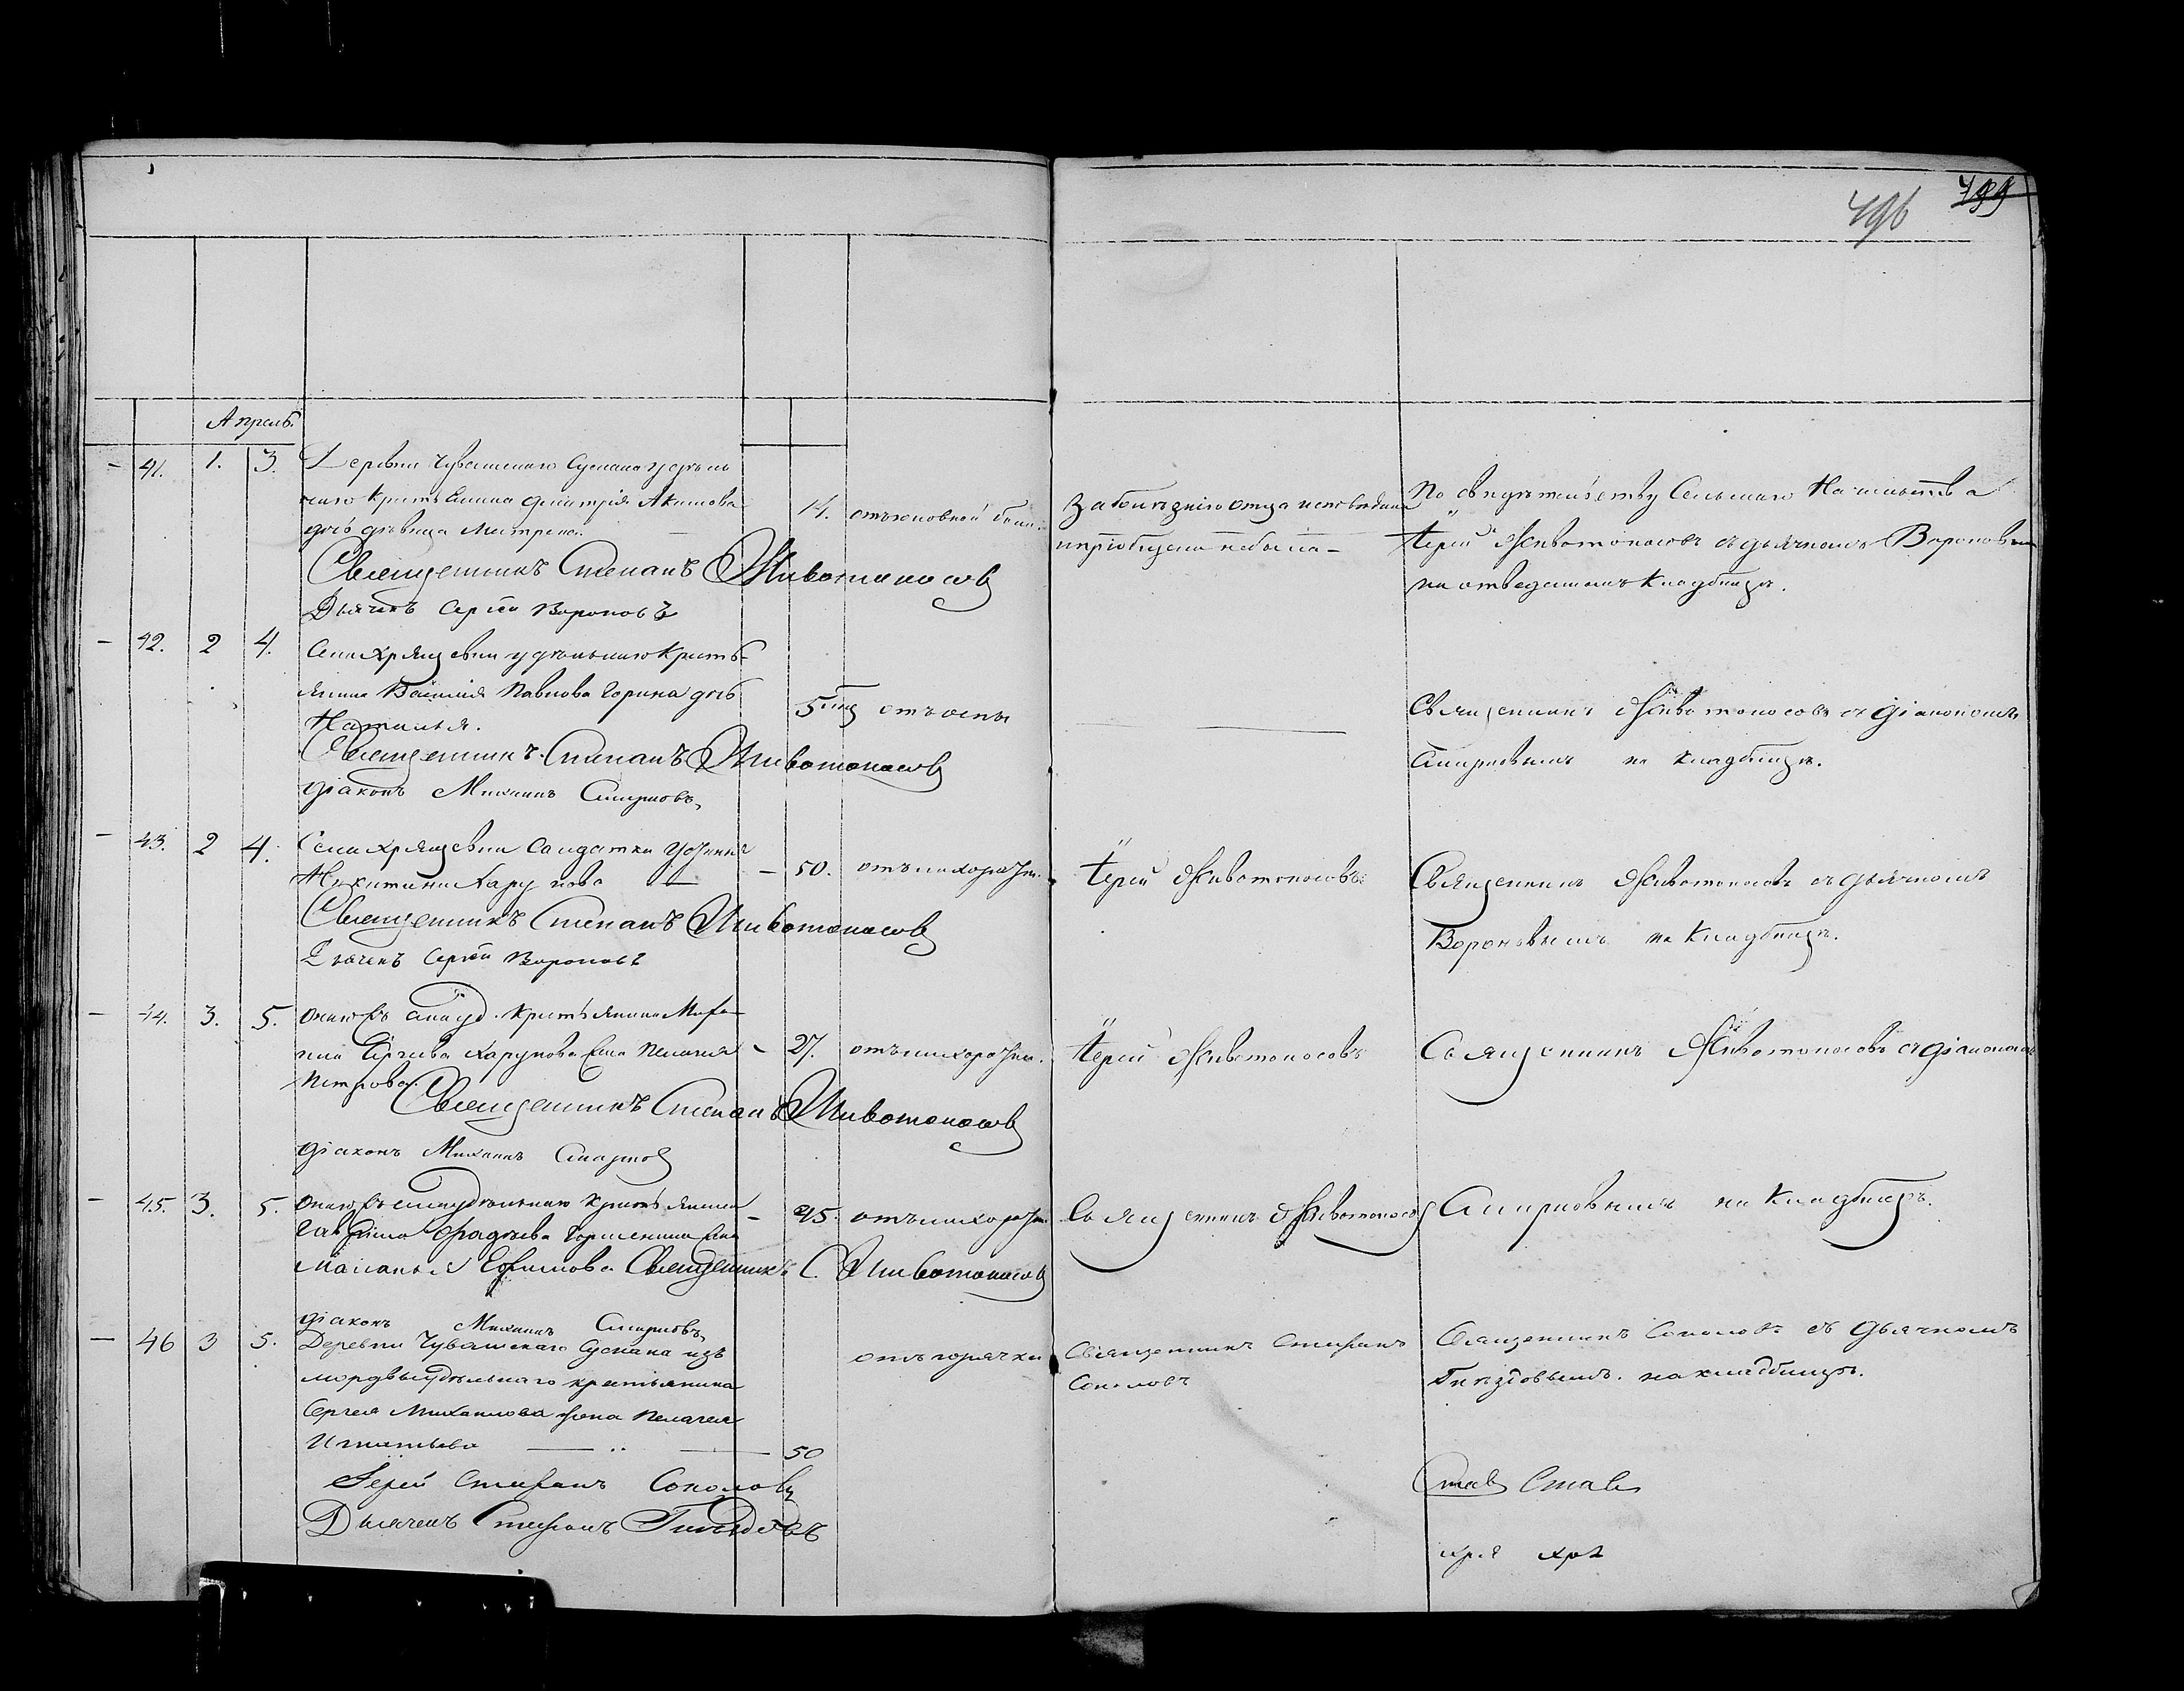 496 499
Апрель.
- 41. 1. 3. Деревни Чувашскаго Сускана удѣль
наго крестьянина Димитрія Акимова
дочь дѣвица Матрена. —
14. отъ головной боли.
За болѣзнію отца исповѣдана
и пріобщена не была —
По свидѣтельству Сельскаго Начальства
Іерей Животоносовъ съ дьячкомъ Вороновым
на отведенномъ кладбищѣ.
Священникъ Степанъ Животоносов
Дьячекъ Сергѣй Вороновъ
- 42. 2 4. Села Хрящевки удѣльнаго Кресть-
янина Василія Павлова Горина дочь
Наталья.
5 отъ оспы
Священникъ Животоносовъ съ діакономъ
Смирновымъ на кладбищѣ.
Священникъ Степанъ Животоносов
Діаконъ Михаилъ Смирновъ
- 43. 2 4. Села Хрящевки Солдатка
Никитина Харунова —
- 50. отъ лихорадки.
Іерей Животоносовъ
Священникъ Животоносовъ съ дьячкомъ
Вороновымъ на Кладбищѣ.
Священникъ Степанъ Животоносов
Дьячекъ Сергѣй Вороновъ
- 44. 3. 5. Онаго жъ села уд. крестьянина
Сергѣева Харунова жена Пелагея
Петрова.
- 27. отъ лихорадки.
Іерей Животоносовъ
Священникъ Животоносовъ съ діакономъ
Священникъ Степанъ Животоносов
Діаконъ Михаилъ Смирнов
- 45. 3. 5. Онаго жъ села удѣльнаго крестьянина
Гаврила жена
Маланья Ефимова Священникъ С. Животоносов
- 45. отъ лихорадки
Священникъ Животоносов
Смирновымъ на Кладбищѣ.
Діаконъ Михаилъ Смирновъ
- 46 3 5. Деревни Чувашскаго Сускана изъ
мордвы удѣльнаго крестьянина
Сергея Михайлова жена Пелагея
Игнатьева — .. — 50
отъ горячки
Священникъ Стефанъ
Соколовъ
Священникъ Соколовъ съ Дьячкомъ
Гнѣздовымъ. на кладбищѣ.
Іерей Стефанъ Соколовъ
Дьячекъ Стефанъ Гнѣздовъ
Став Став
хря хря